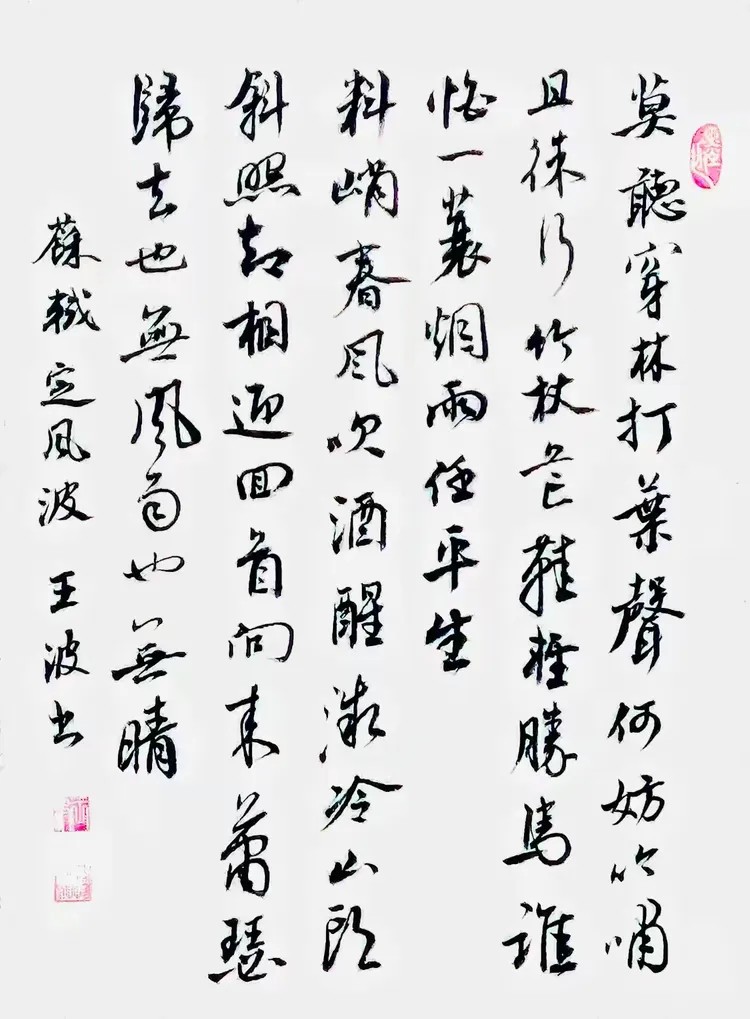 莫聽穿林打葉聲何妨吟嘯
且徐行竹杖芒鞋輕勝馬誰
怕一蓑烟雨任平生
料峭春风吹酒醒微冷山头
斜照却相迎回首向来蕭瑟
歸去也無風雨也無晴
蘇軾定风波 王波书